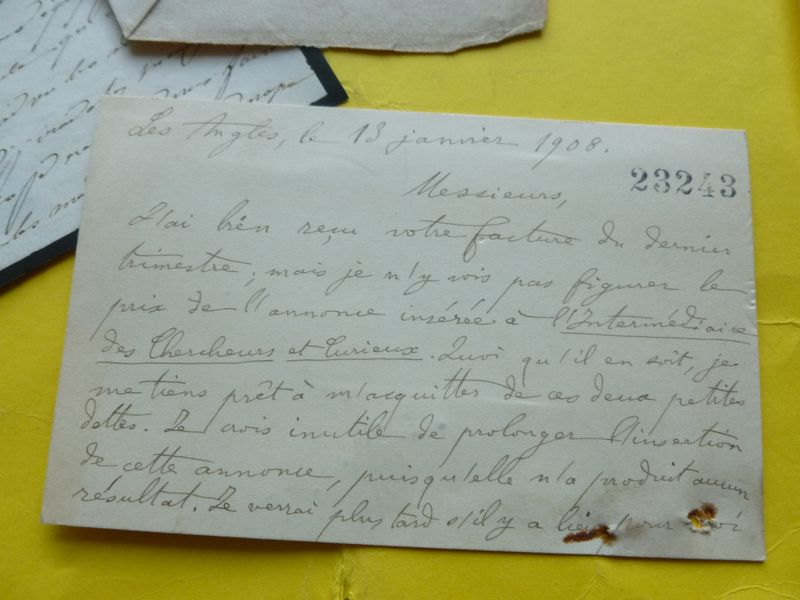 Les Angles, le 13 janvier 1908.
23243
Messieurs,
J'ai bien reçu votre facture du dernier
trimestre; mais je n'y vois pas figurer le
prix de l'annonce insérée à l'Intermédiaire
des Chercheurs et Curieux. Quoi qu'il en soit, je
me tiens prêt à m'acquitter de ces deux petites
dettes. Je crois inutile de prolonger l'insertion
de cette annonce, puisqu'elle n'a produit aucun
résultat. Je verrai plus tard s'il y a lieu pour moi